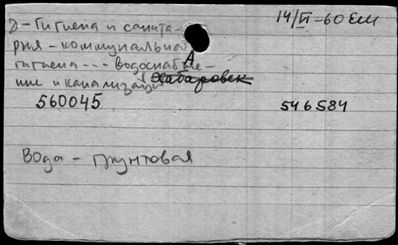 2-Гигиена и санита- 14/VI-60 Ем
рия - коммунальная
гигиена --- водоснабже- А
ние и канализация Хабаровск
560045 546584
Вода - грунтовая